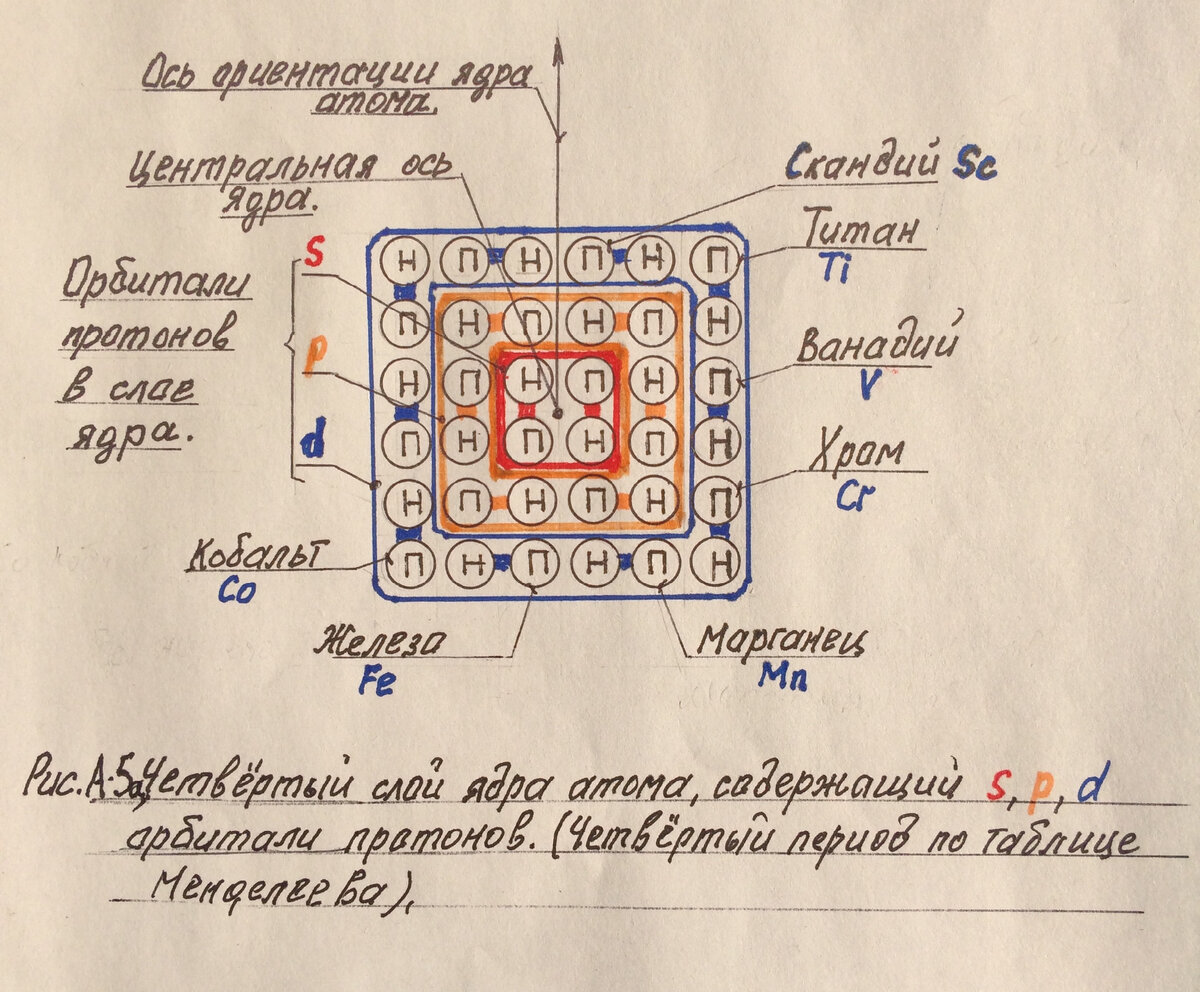 Ось ориентации ядра
атома.
Центральная ось
ядра.
Скандий Sc
Титан
Ti
Орбитали
протонов
в слое
ядра.
s
p
d
Н П Н П Н П
П Н П Н П Н
Н П Н П Н П
П Н П Н П Н
Н П Н П Н П
П Н П Н П Н
Ванадий
V
Хром
Cr
Кобальт
Co
Железо
Fe
Марганец
Mn
Рис. А-5а, Четвёртый слой ядра атома, содержащий s, p, d
орбитали протонов. (Четвёртый период по таблице
Менделеева).